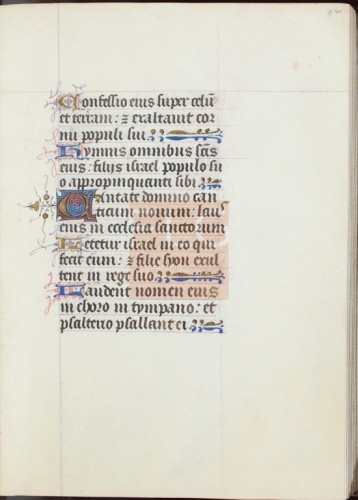 Confessio eius super celū
et terram: ⁊ exaltauit cor
nu populi sui.
Hymnus omnibus sc̄is
eius: filijs israel populo su
o appropinquanti sibi.
Cantate domino can
ticum nouum: laus
eius in ecclesia sanctorum
Letetur israel in eo qui
fecit eum: ⁊ filie syon exul
tent in rege suo
Laudent nomen eius
in choro in tympano: et
psalterio psallant ei.